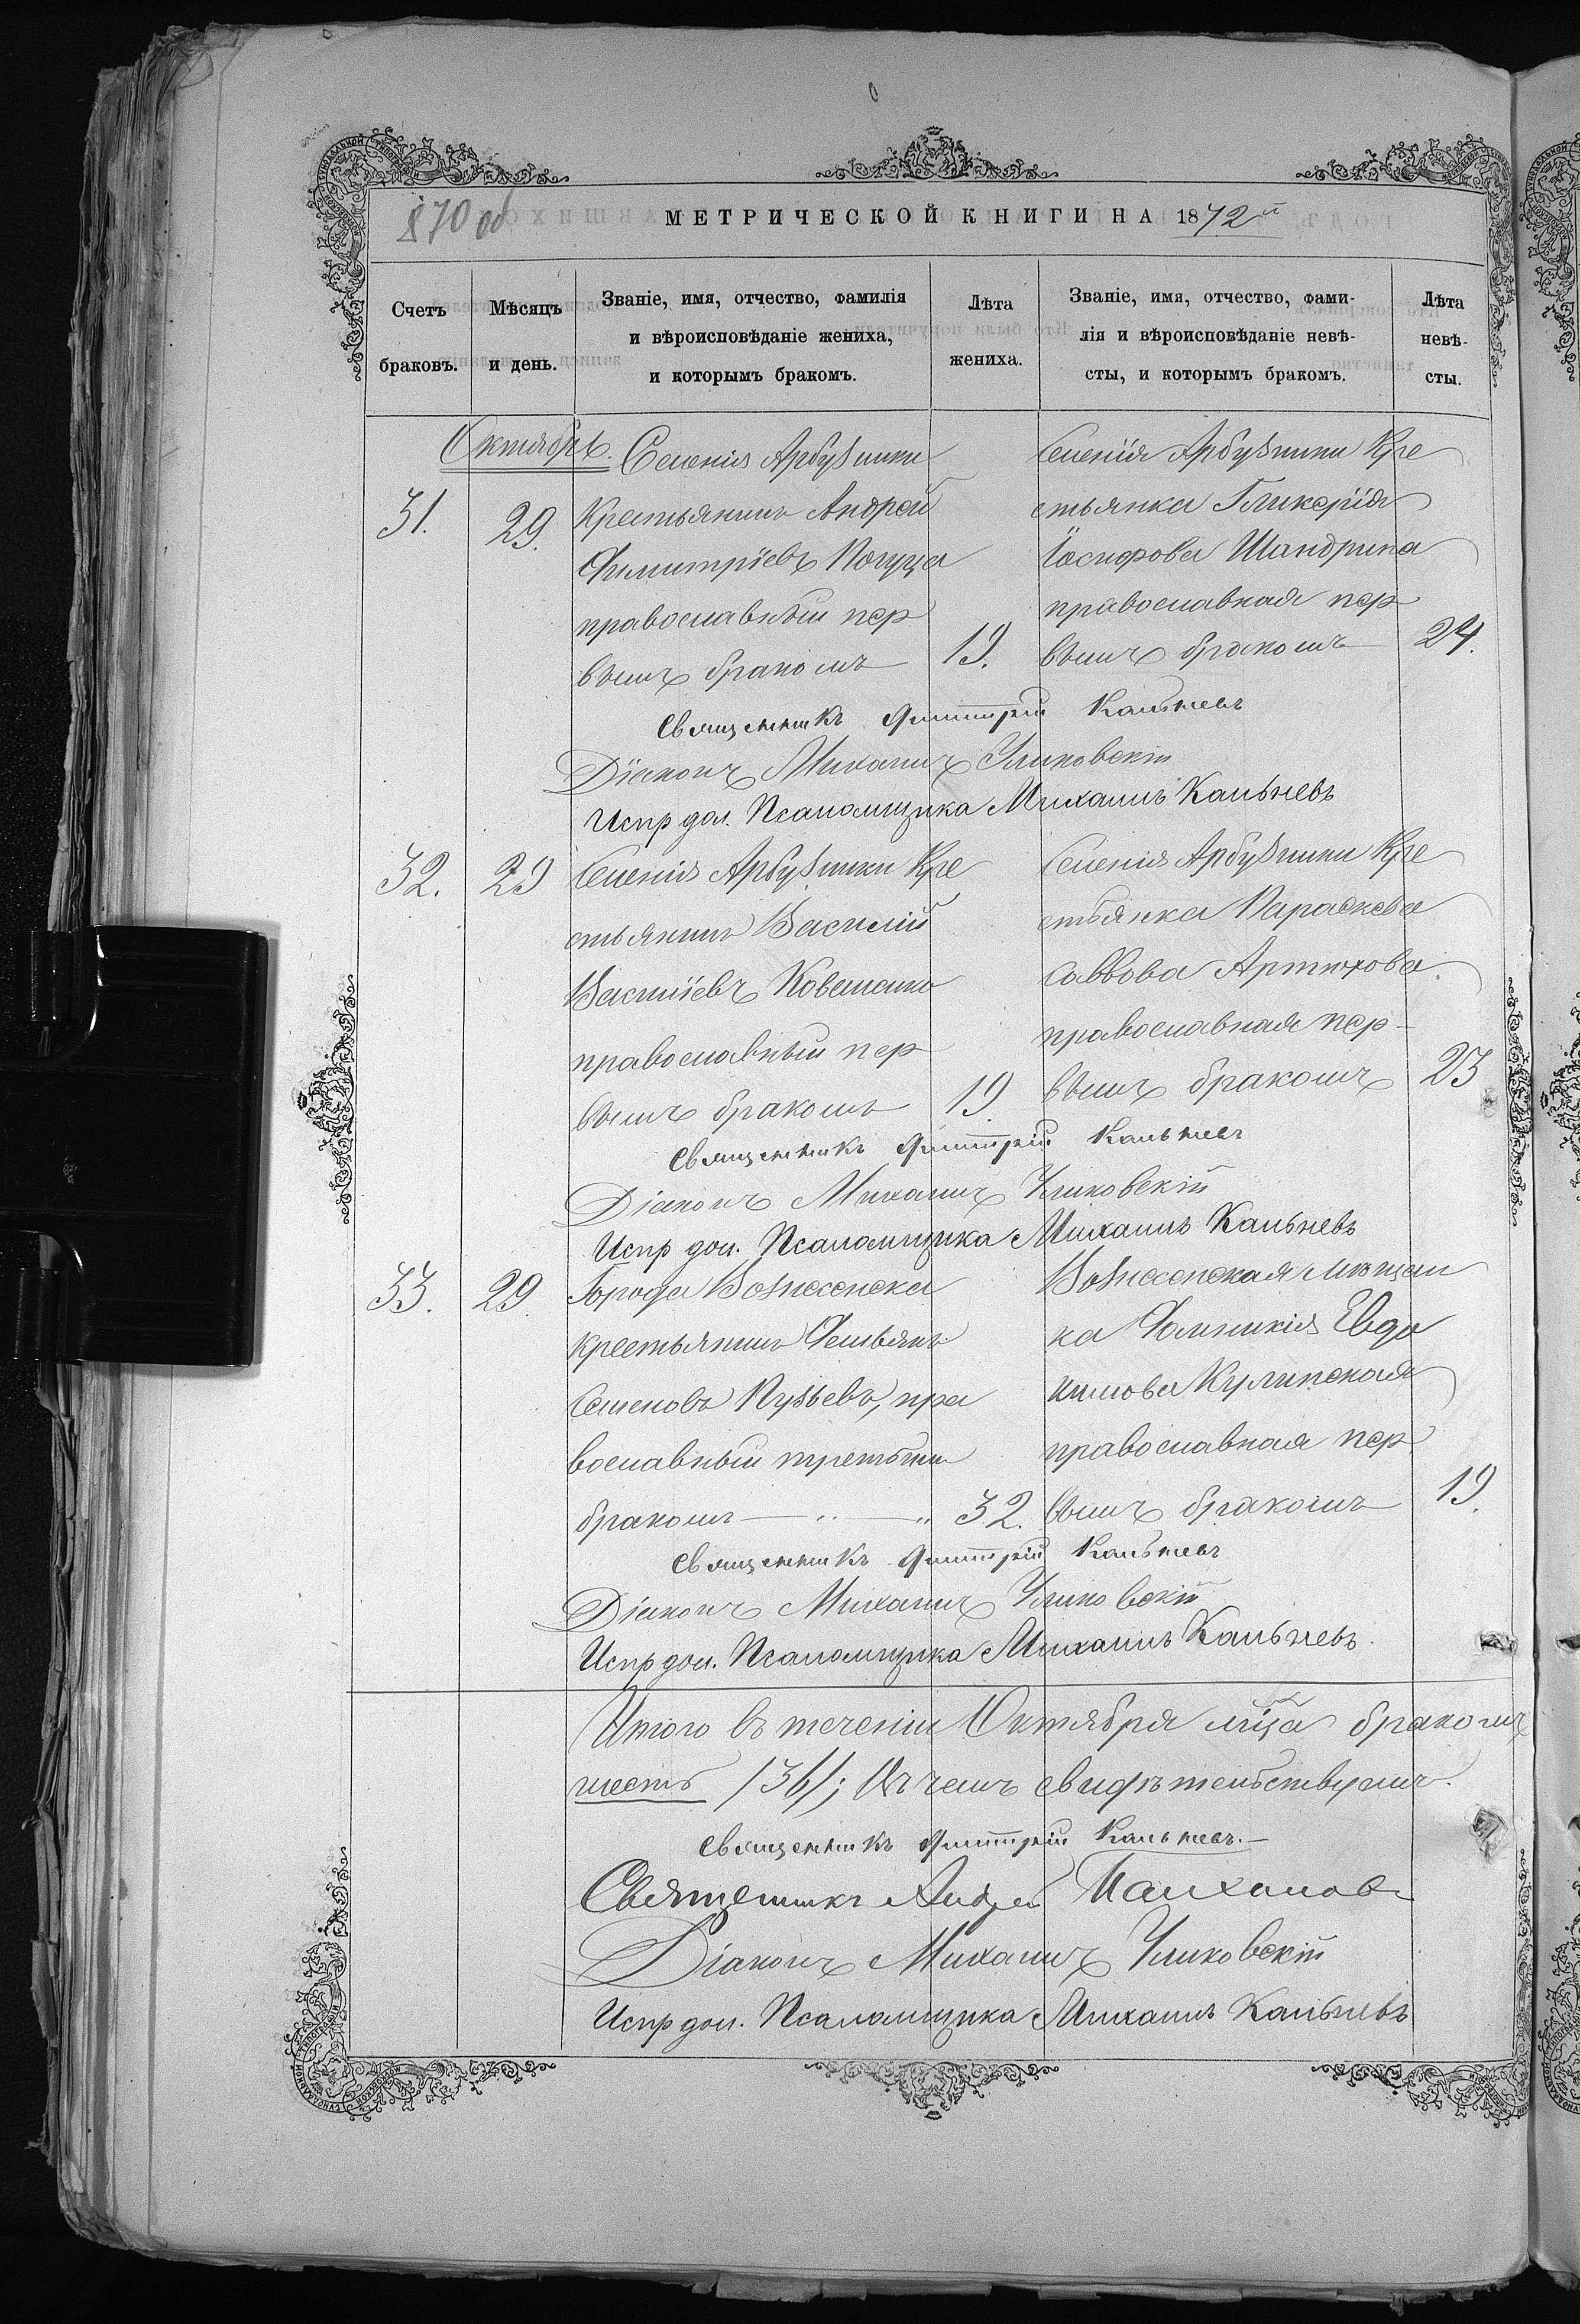 870 об
МЕТРИЧЕСКОЙ КНИГИ НА 1872й
Счетъ браковъ.
Мѣсяцъ и день.
Званіе, имя, отчество, фамилія
и вѣроисповѣданіе жениха,
и которымъ бракомъ.
Лѣта жениха.
Званіе, имя, отчество, фами-
лія и вѣроисповѣданіе невѣ-
сты, и которымъ бракомъ.
Лѣта невѣ-
сты.
Октябрь.
31. 29.
Селенія Арбузинки
Крестьянинъ Андрей
Димитріевъ Погуца
православный пер
вымъ бракомъ 19.
Селенія Арбузинки Кре
стьянка Гликерія
Іосифова Шандрина
православная пер
вымъ бракомъ 24.
Священникъ Димитрій Кальневъ
Діаконъ Михаилъ Уликовскій
Испр дол. Псаломщика Михаилъ Кальневъ
32. 29
Селенія Арбузинки Кре
стьянинъ Василій
Василіевъ Коваленко
православный пер
вымъ бракомъ 19
Селенія Арбузинки Кре
стьянка Параскева
Саввова Артюхова
православная пер-
вымъ бракомъ 23
Священникъ Димитрій Кальневъ
Діаконъ Михаилъ Уликовскій
Испр дол. Псаломщика Михаилъ Кальневъ
33. 29
Города Вознесенска
крестьянинъ Демьянъ
Семеновъ Пузьевъ, пра
вославный третьимъ
бракомъ 32.
Вознесенская мѣщан
ка Домникія Евдо
кимова Кулинская
православная пер
вымъ бракомъ 19.
Священникъ Димитрій Кальневъ
Діаконъ Михаилъ Уликовскій
Испр дол. Псаломщика Михаилъ Кальневъ.
Итого въ теченіи Октября мца бракомъ
шесть /36/; Въ чемъ свидѣтельствуемъ.
Священникъ Димитрій Кальневъ.—
Священникъ Андрей
Діаконъ Михаилъ Уликовскій
Испр дол. Псаломщика Михаилъ Кальневъ